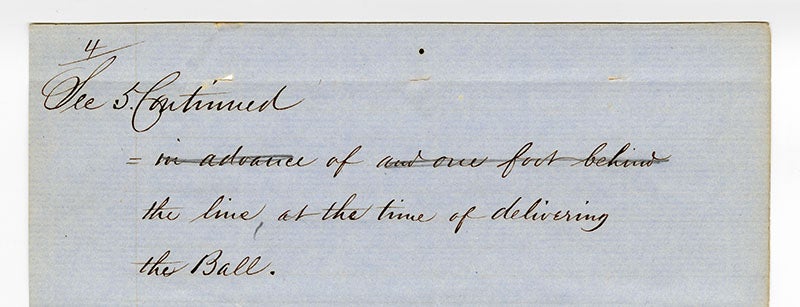 4
Sec 5. Continued
= in advance of and one foot behind
the line, at the time of delivering
the Ball.